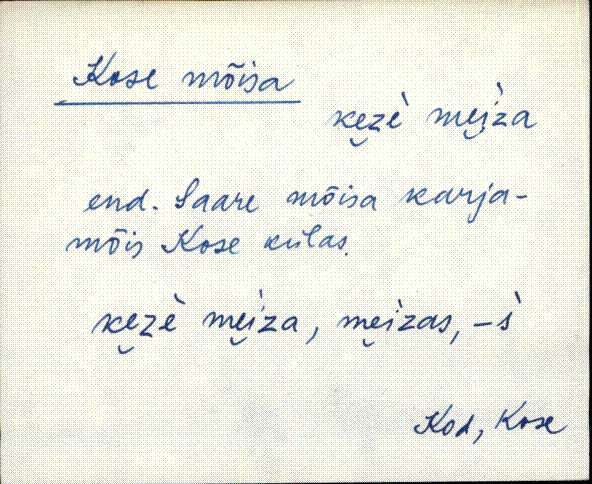 Kose mõisa
ke̮zè me̮i̇za
end. Saare mõisa karja-
mõis Kose külas.
ke̮zè me̮i̇za, me̮izas, -ś
Kod, Kose